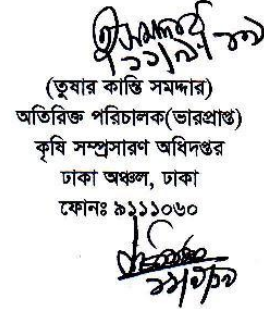 (তুষার কান্তি সমদ্দার)
অতিরিক্ত পরিচালক(ভারপ্রাপ্ত)
কৃষি সম্প্রসারণ অধিদপ্তর
ঢাকা অঞ্চল, ঢাকা
ফোনঃ ৯১১১০৬০